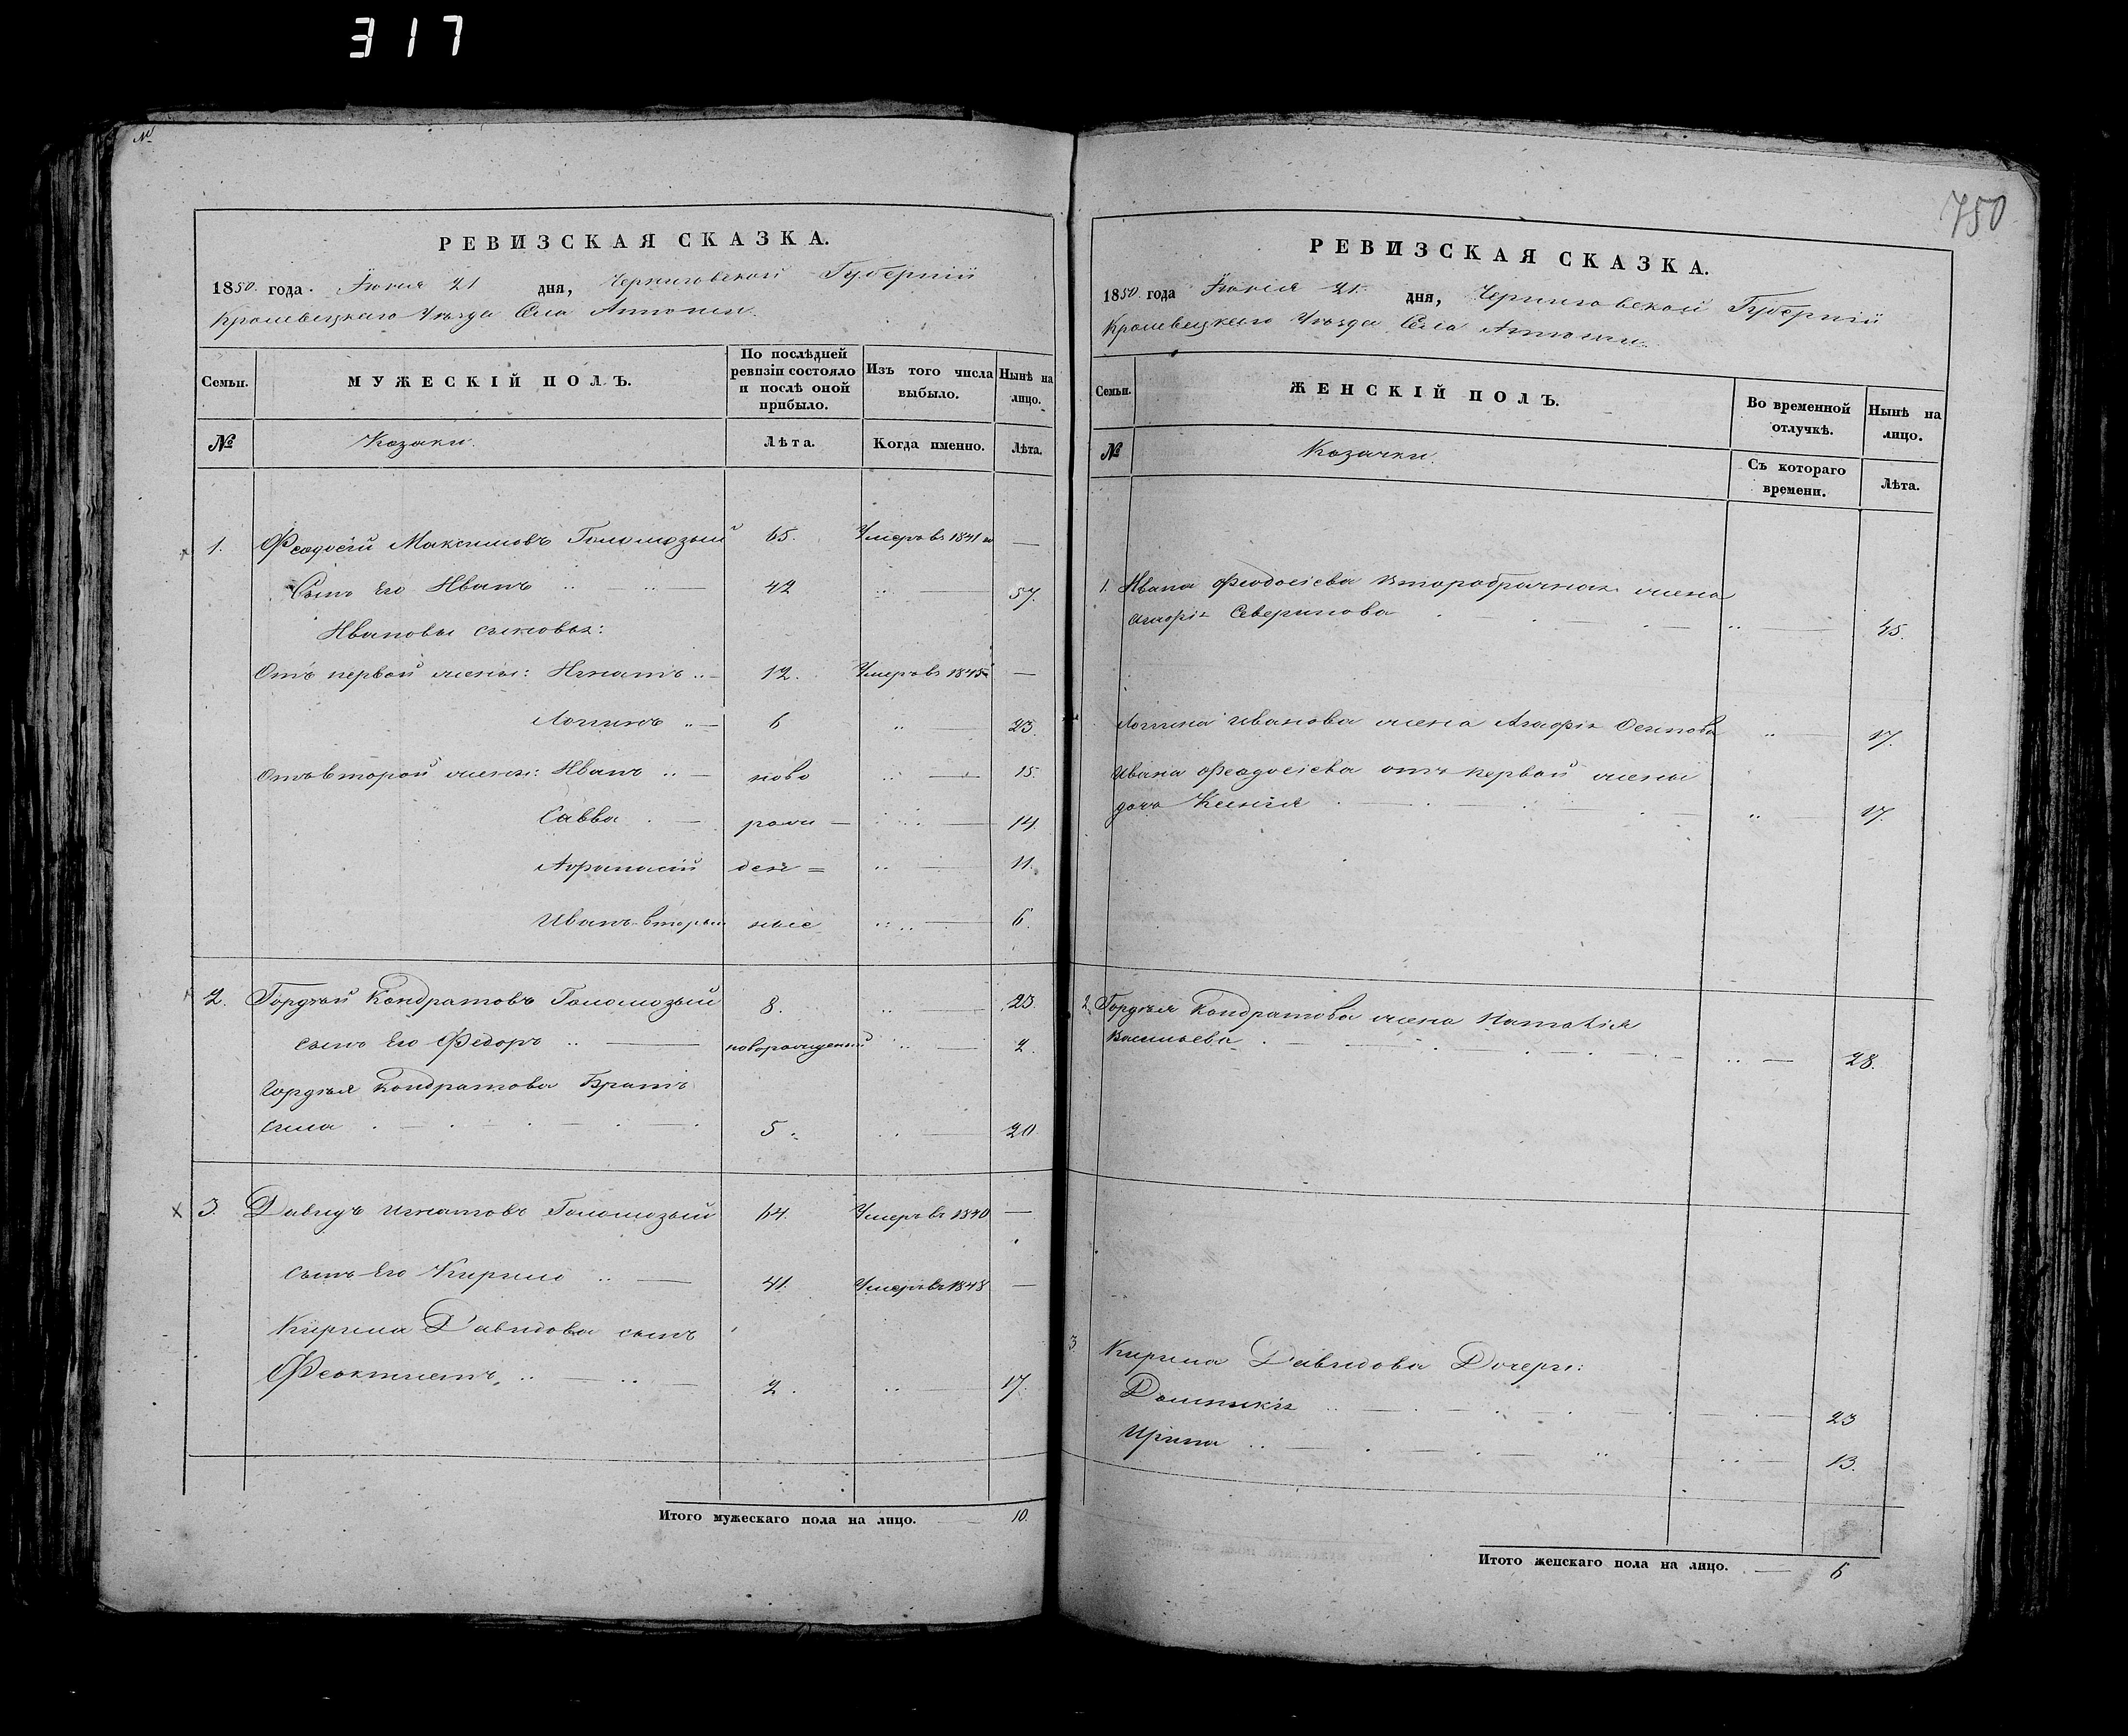 317
№
РЕВИЗСКАЯ СКАЗКА.
1850 года. Іюня 21 дня, Черниговской Губерніи
Кролевецкаго Уѣзда Села
Семьи.
МУЖЕСКІЙ ПОЛЪ.
По послѣдней ревизіи состояло и послѣ оной прибыло.
Изъ того числа выбыло.
Нынѣ на лицо.
№
Козаки.
Лѣта.
Когда именно.
Лѣта.
1. Феодосій Максимовъ Голомозый 65. Умеръ въ 1841 —
Сынъ Его Иванъ 42 — 57.
Ивановы сыновья:
Отъ первой жены: Игнатъ 12. Умеръ въ 1845 —
Логинъ 6 23.
Отъ второй жены: Иванъ ново 15.
Савва рож — 14.
Афанасій ден = 11.
Иванъ вторый ные 6.
2. Гордѣй Кондратовъ Голомозый 8. 23.
сынъ Его Федоръ новорожденный 2.
Гордѣя Кондратова Братъ
Сила 5. 20.
3. Давидъ Игнатовъ Голомозый 64. Умеръ въ 1840 —
сынъ Его Кирило 41. Умеръ въ 1848 —
Кирила Давидова сынъ
Феоктистъ 2. 17.
Итого мужескаго пола на лицо. — 10.
750
РЕВИЗСКАЯ СКАЗКА.
1850 года Іюня 21. дня, Черниговской Губерніи
Кролевецкаго Уѣзда Села
Семьи.
ЖЕНСКІЙ ПОЛЪ.
Во временной отлучкѣ.
Нынѣ на лицо.
№
Козачки.
Съ котораго времени.
Лѣта.
1. Ивана Феодосіева второбрачная жена
Агафія Северинова 45.
Логина Иванова жена Агафія Осипова 17.
Ивана Феодосіева отъ первой жены
дочь 17.
2. Гордѣя Кондратова жена Наталія
Васильева 28.
3. Кирила Давидова Дочери:
Домникія 23
Ирина 13.
Итого женскаго пола на лицо. — 6